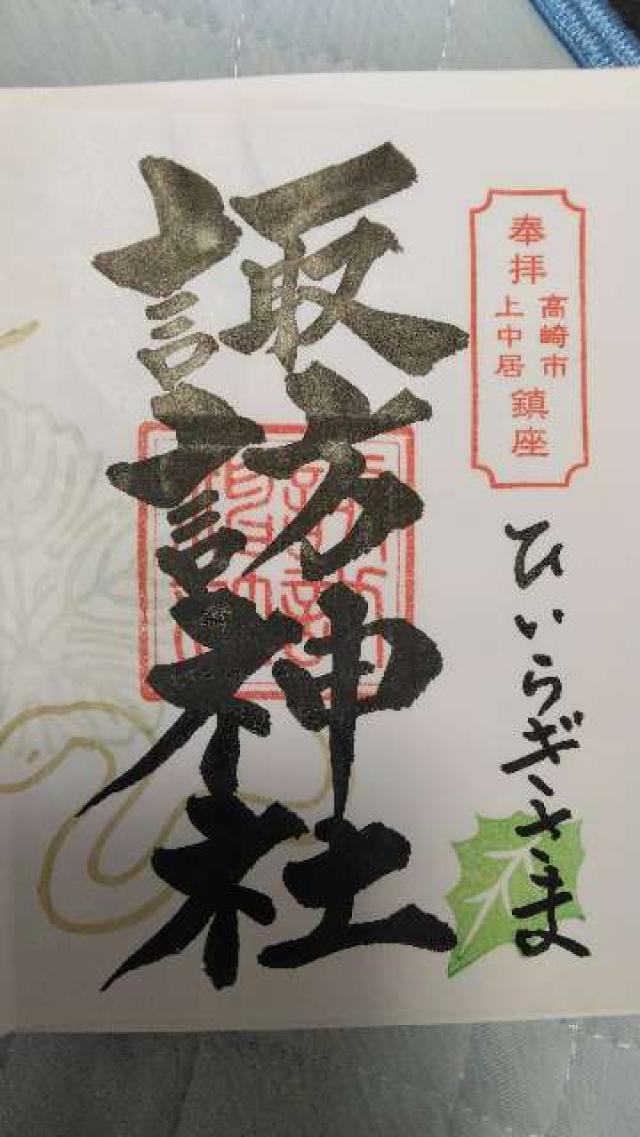 奉拝
高崎市
上中居
鎮座
ひいらぎさま
諏訪神社